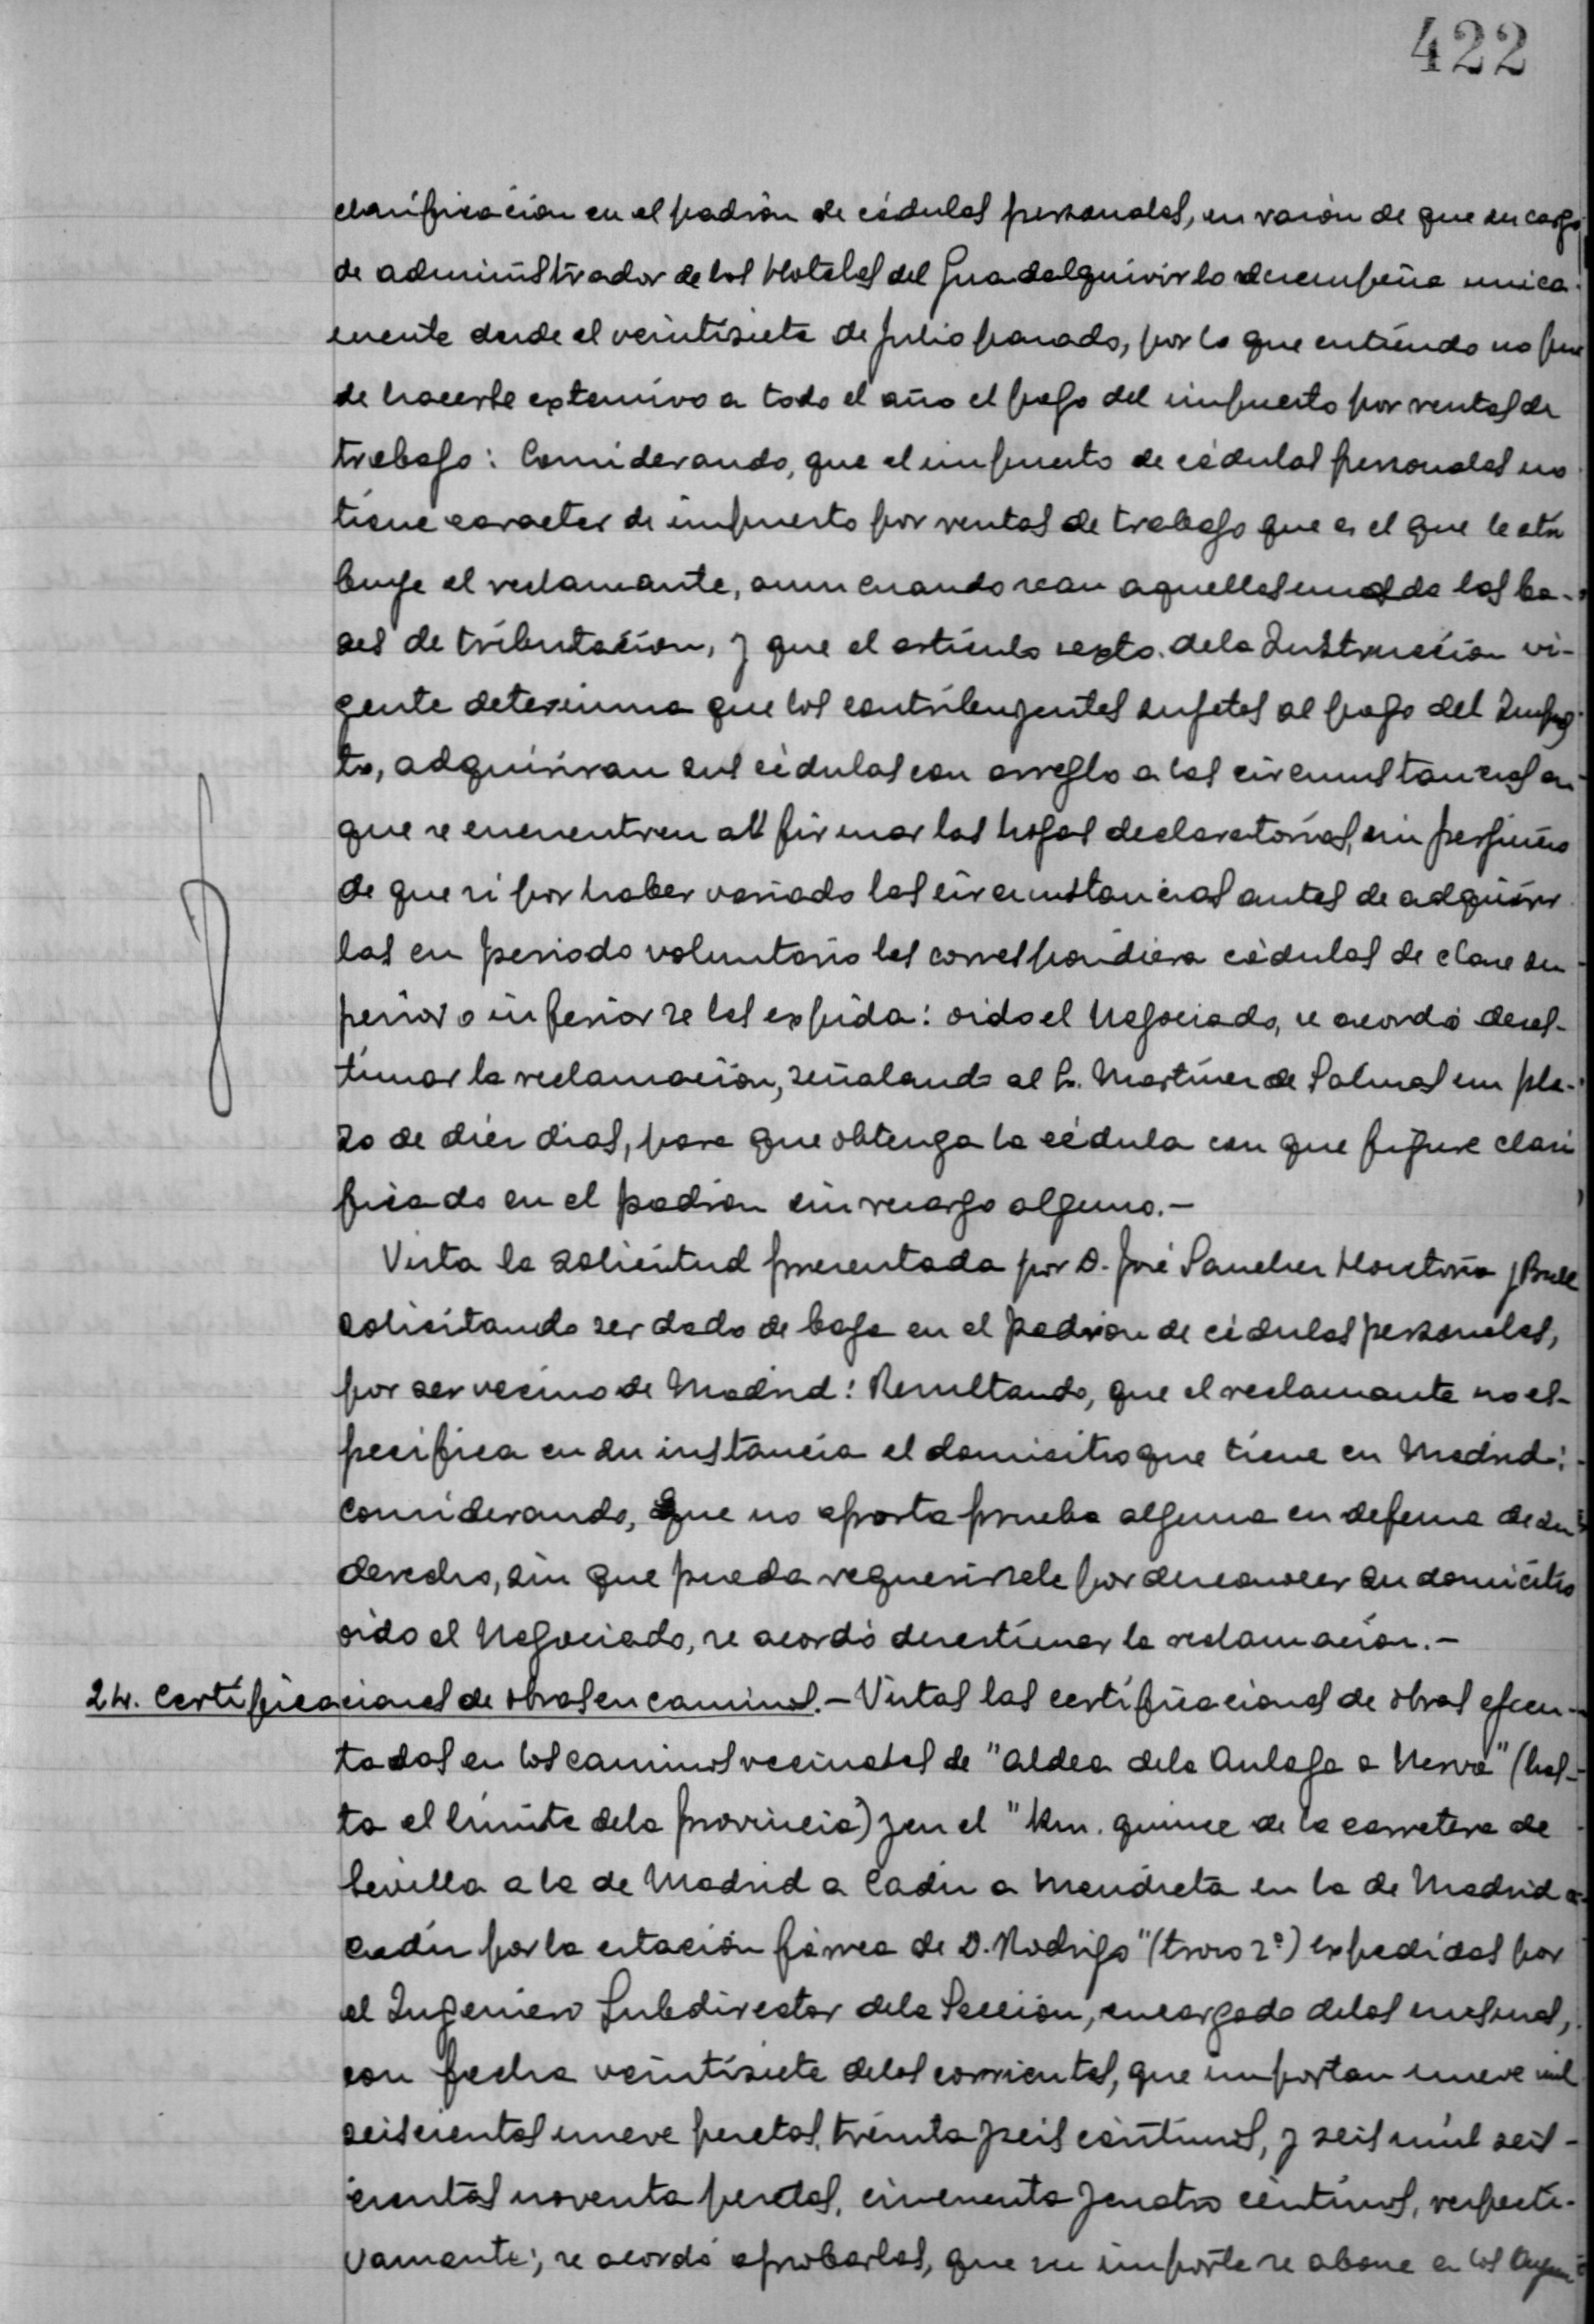 422
clasificación en el padrón de cédulas personales, en razón de que su cargo
de administrador de los Hoteles del Guadalquivir lo desempeña unica-
mente desde el veintisiete de Julio pasado, por lo que entiende no pue
de hacerse extensivo a todo el año el pago del impuesto por rentas de
trabajo: Considerando, que el impuesto de cédulas personales no
tiene caracter de impuesto por rentas de trabajo que es el que le atri
buye el reclamante, aun cuando sean aquellas una de las ba-
ses de tributación, y que el artículo sexto de la Instrucción vi-
gente determina que los contribuyentes sujetos al pago del Impues
to, adquiriran sus cédulas con arreglo a las circunstancias en
que se encuentren al firmar las hojas declaratorias, sin perjuicio
de que si por haber variado las circunstancias antes de adquirir
las en periodo voluntario les correspondiera cédulas de clase su
perior o inferior se les expida: oido el Negociado, se acordó deses-
timar la reclamación, señalando al Sr. Martínez de Salinas un pla-
zo de diez dias, para que obtenga la cédula con que figure clasi
ficado en el padrón sin recargo alguno.-
Vista la solicitud presentada por D. José Sanchez Hontoria y Bull
solicitando ser dado de baja en el padron de cédulas personales,
por ser vecino de Madrid: Resultando, que el reclamante no es-
pecifica en su instancia el domicilio que tiene en Madrid:
Considerando, que no aporta prueba alguna en defensa de su
derecho, sin que pueda requerirsele por desconocer su domicilio
oido el Negociado, se acordó desestimar la reclamación.-
24. Certificaciones de obras en caminos.- Vistas las certificaciones de obras ejecu-
tadas en los caminos vecinales de "Aldea de la Aulaga a Nerva" (has-
ta el límite de la provincia) y en el "Km. quince de la carretera de
Sevilla a la de Madrid a Cadiz a Mendieta en la de Madrid a
Cadiz por la estación férrea de D. Rodrigo" (trozo 2º) expedidas por
el Ingeniero Subdirector de la Sección, encargado de las mismas,
con fecha veintisiete de los corrientes, que importan nueve mil
seiscientas nueve pesetas, treinta y seis céntimos, y seis mil seis-
cientas noventa pesetas, cincuenta y cuatro céntimos, respecti-
vamente; se acordó aprobarlas, que su importe se abone a los Ayun